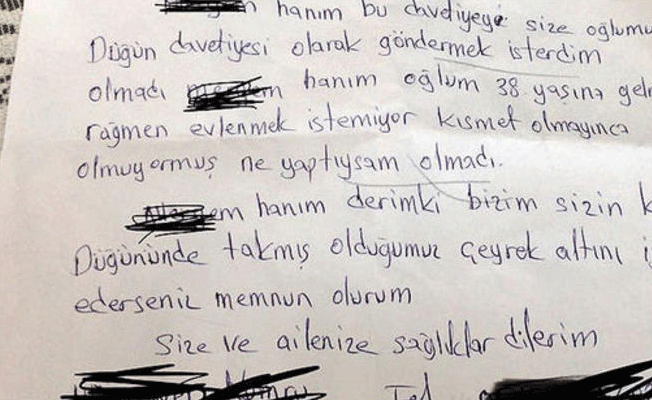 hanım bu davetiyeyi size oğlumu
Düğün davetiyesi olarak göndermek isterdim
olmadı hanım oğlum 38 yaşına gel
rağmen evlenmek istemiyor kısmet olmayınca
olmuyormuş ne yaptıysam olmadı.
hanım derimki bizim sizin k
Düğününde takmış olduğumuz çeyrek altını i
ederseniz memnun olurum
Size ve ailenize sağlıklar dilerim
Tel